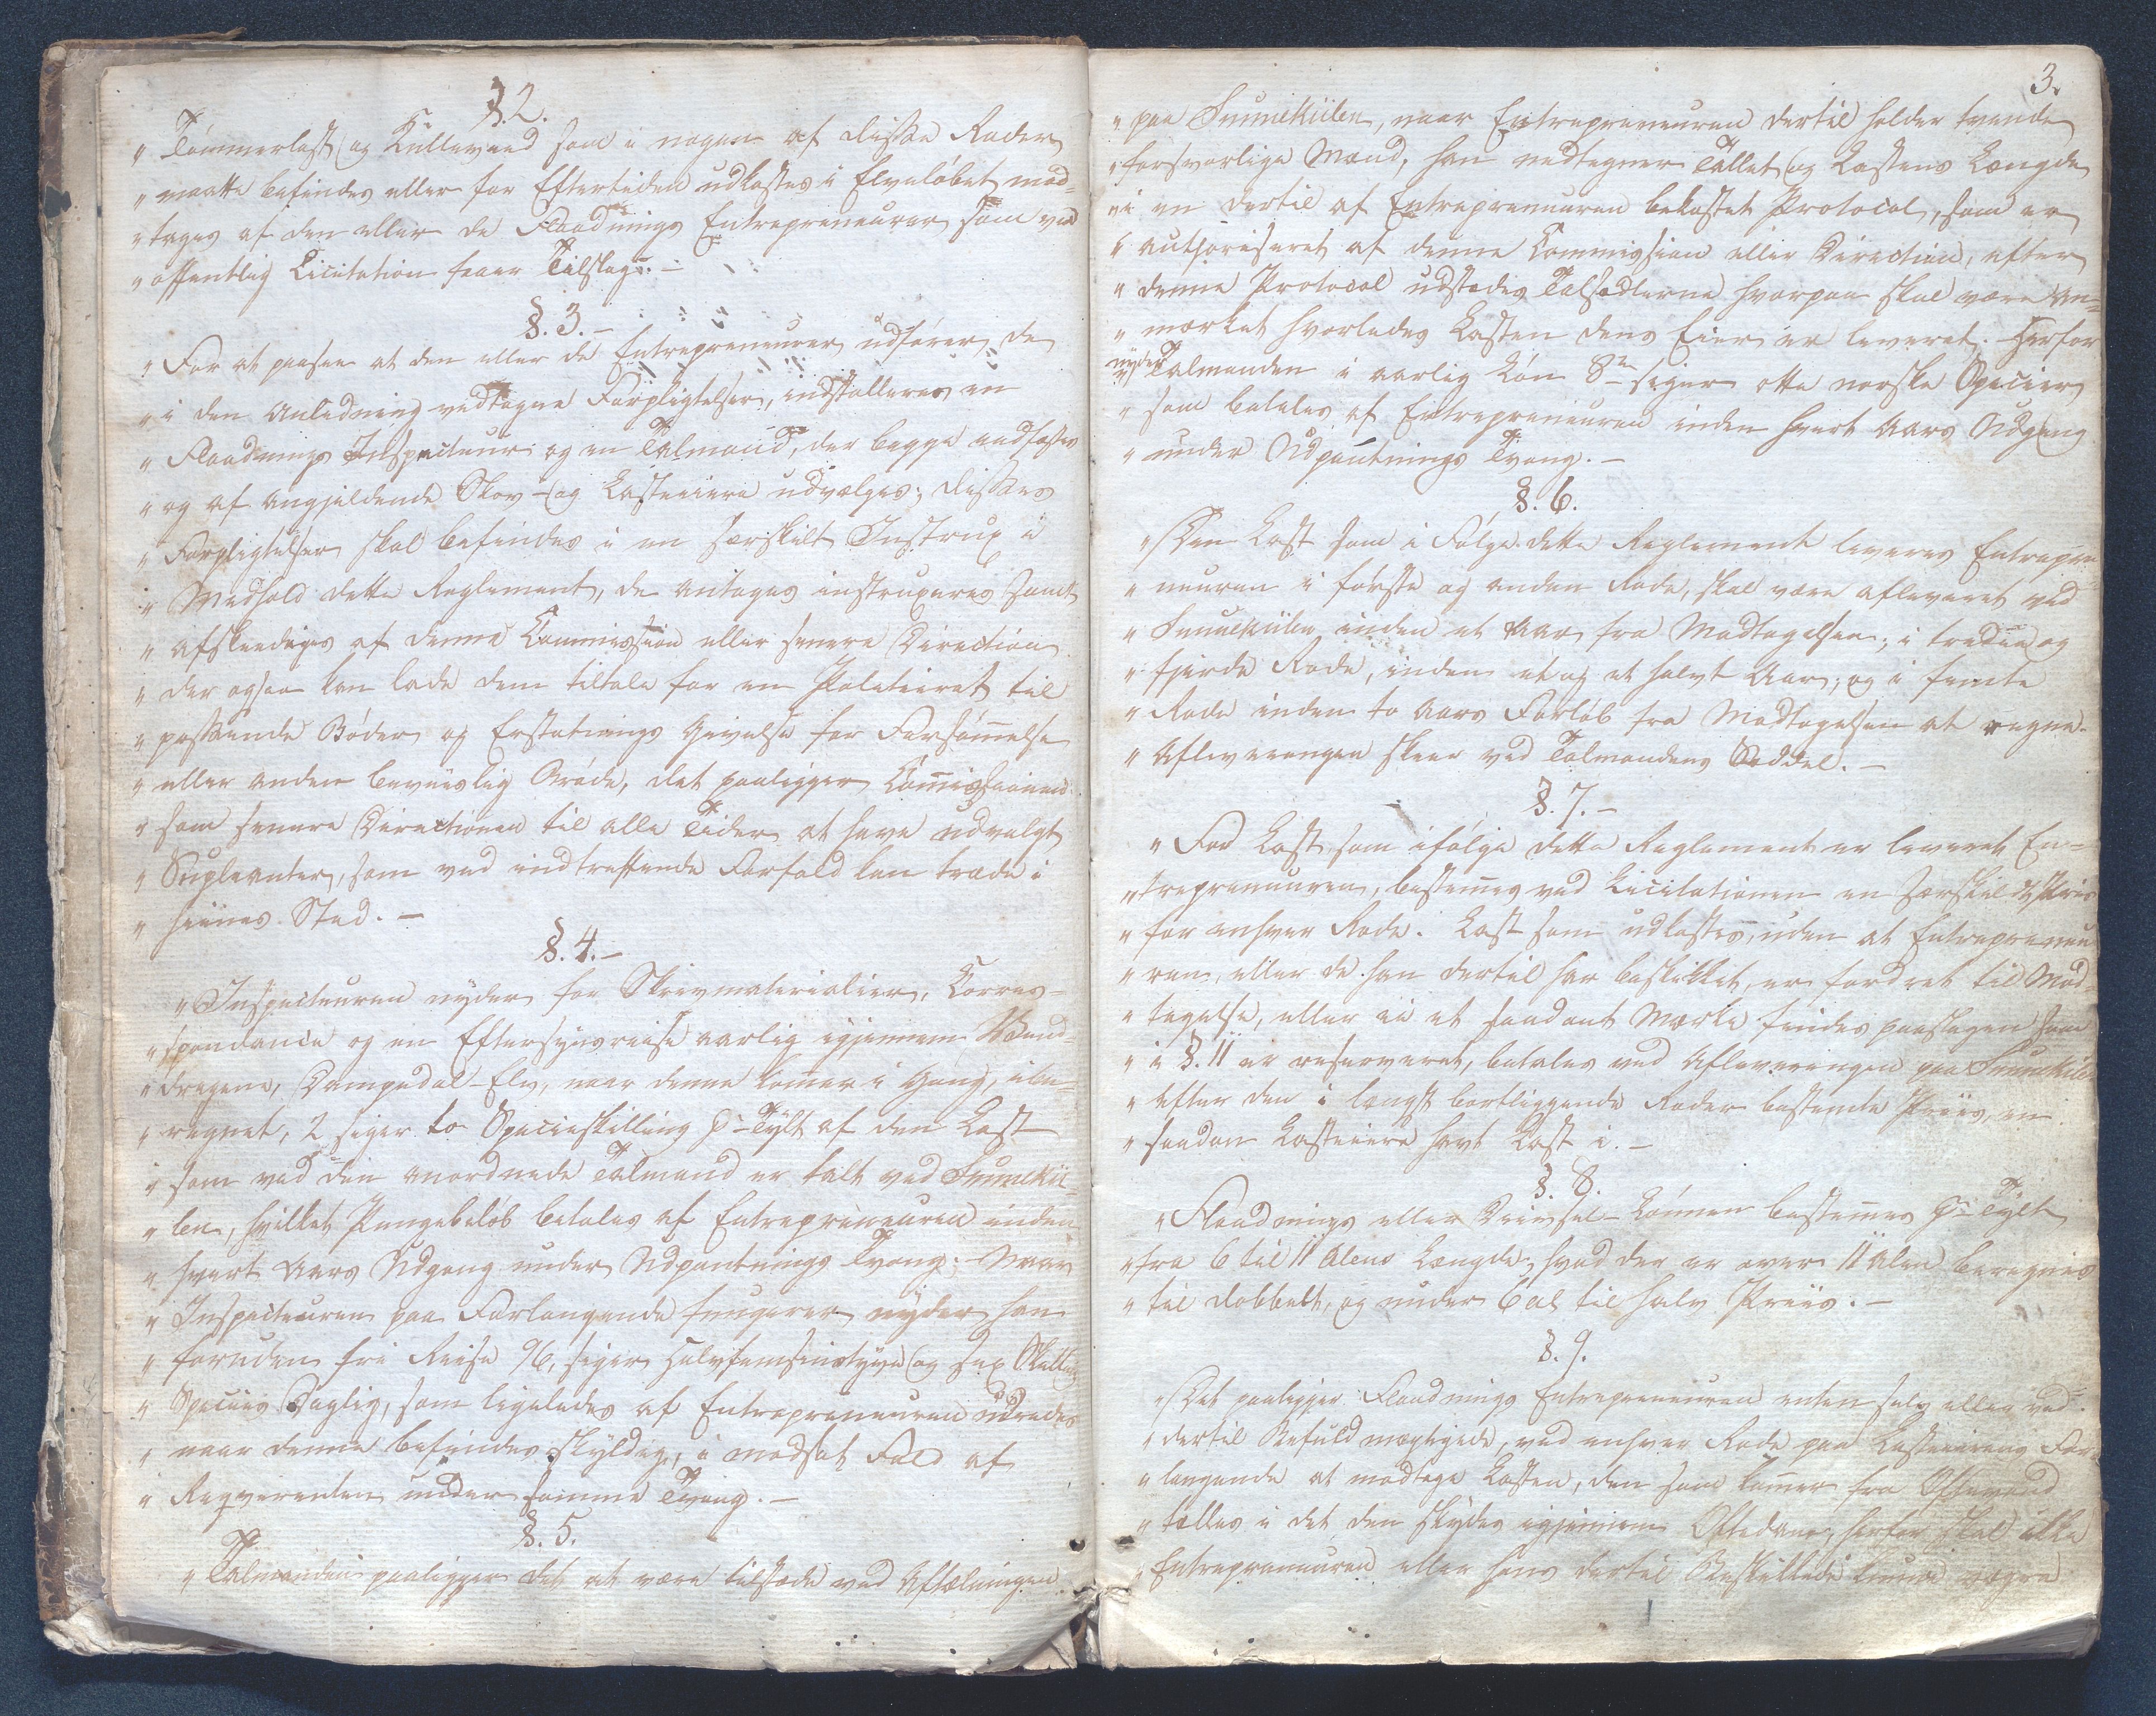 §.2.
" Tømmerlast og Kulleveed som i nogen af disse Roder
" maatte befindes eller for Eftertiden udkastes i Elveløbet mod-
" tages af den eller de Flaadnings Entrepreneurer som ved
" offentlig Licitation faaer Tilslag. –
§.3. –
" For at paasee at den eller de Entrepreneurer udfører de
" i den Anledning vedtagne Forpligtelser, indstalleres en
" Flaadnings Inspecteur og en Talmand, der begge eedfæstes
" og af angjeldende Skov- og Lasteeiere udvælges; disses
" Forpligtelser skal befindes i en særskilt Instrux i
" Medhold dette Reglement, de antages instruxeres samt
" afskeediges af denne Commission eller senere Direction
" der ogsaa kan lade dem tiltale for en Politieret til
" passende Bøder og Erstatnings Givelse for Forsømmelse
" eller anden beviislig Brøde, det paaligger Commissionen
" som senere Directionen til alle Tider at have udvalgt
" Supleanter, som ved indtreffende Forfald kan træde i
" hiines Sted. –
§.4. –
" Inspecteuren nyder for Skrivmaterialier, Corres-
" pondance og en Eftersynsreise aarlig igjennem Vand-
" dragene, Dampedal-Elv, naar denne kommer i Gang, ibe-
" regnet, 2 siger to Specieskilling pr Tylt af den Last
" som ved den anordnede Talmand er talt ved Svinekii-
" len, hvilket Pengebeløb betales af Entrepreneuren inden
" hvert Aars Udgang under Udpantnings Tvang. – Naar
" Inspecteuren paa Forlangende fungerer nyder han
" foruden fri Reise 96, siger Halvfemsinstyve og sex Skilling
" Species Daglig, som ligeledes af Entrepreneuren udredes
" naar denne befindes skyldig, i modsat Fald af
" Reqverenten under samme Tvang. –
§.5.
" Talmanden paaligger det at være tilstede ved Aftælningen
3.
" paa Svinekiilen, naar Entrepreneuren dertil holder tvende
" forsvarlige Mænd, han nedtegner Tallet og Lastens Længde
" i en dertil af Entrepreneuren bekostet Protocol, som er
" authoriseret af denne Commission eller Direction, efter
" denne Protocol udstædes Talsedlerne hvorpaa skal være an-
" mærket hvorledes Lasten dens Eier er leveret. Herfor
nyder
" Talmanden i aarlig Løn 8 siger otte norske Specier
" som betales af Entrepreneuren inden hvert Aars Udgang
" under Udpantnings Tvang. –
§.6.
" Den Last som i Følge dette Reglement leveres Entrepre-
" neuren i første og anden Rode, skal være afleveret ved
" Svinekiilen inden et Aar fra Modtagelsen; i tredie og
" fjerde Rode, inden et og et halvt Aar; og i femte
" Rode inden to Aars Forløb fra Modtagelsen at regne.
" Afleveringen skeer ved Talmandens Seddel. –
§.7. –
" For Last som ifølge dette Reglement er leveret En-
" trepreneuren, bestemmes ved Licitationen en særskilt Priis
" for enhver Rode. Last som udkastes, uden at Entrepreneu-
" ren, eller de han dertil har beskikket, er fordret til Mod-
" tagelse, eller ei et saadant Mærke findes paaslagen som
" i §.11 er reserveret, betales ved Afleveringen paa Svinekiilen
" efter den i længst bortliggende Roder bestemte Priis, en
" saadan Lasteeiere havt Last i. –
§.8.
" Flaadnings eller Drivsel-Lønnen bestemmes pr Tylt
" fra 6 til 11 Alens Længde; hvad der er over 11 Alen beregnes
" til dobbelt, og under 6 al til halv Priis. –
§.9.
" Det paaligger Flaadnings Entrepreneuren enten selv eller ved
" dertil Befuldmægtigede, ved enhver Rode paa Lasteeierens For-
" langende at modtage Lasten, den som kommer fra Oftevand
" tælles i det den skydes igjennem Oftedam, herfor skal ikke
" Entrepreneuren eller hans dertil Beskikkede kunne vægre